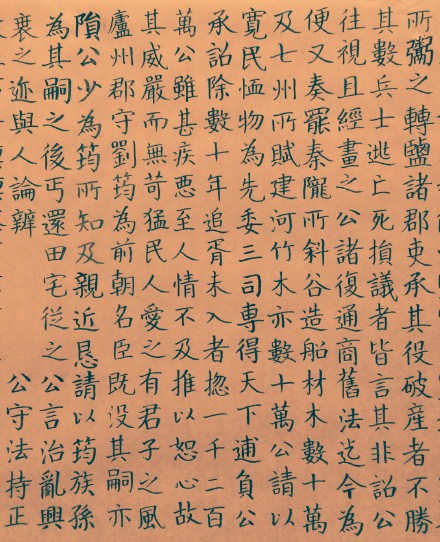 所弼之轉鹽諸郡吏承其役破產者不勝
其數兵士逃亡死損議者皆言其非詔公
往視且經畫之公諸復通商舊法迄今為
便又奏罷秦隴所斜谷造船材木數十萬
及七州所賦建河竹木亦數十萬公請以
寬民恤物為先委三司專得天下逋負公
承詔除數十年追胥未入者揔一千二百
萬公雖甚疾惡至人情不及推以恕心故
其威嚴而無苛猛民人愛之有君子之風
廬州郡守劉筠為前朝名臣既没其嗣亦
隕公少為筠所知及親近恳請以筠族孫
為其嗣之後丐還田宅從之公言治亂興
衰之迹與人論辨 公守法持正